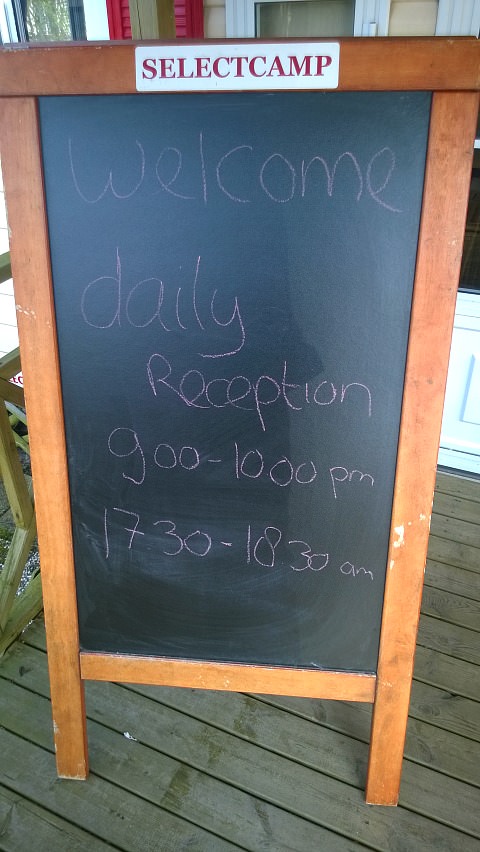 SELECTCAMP
Welcome
daily
Reception
900-1000 pm
1730-1830 am